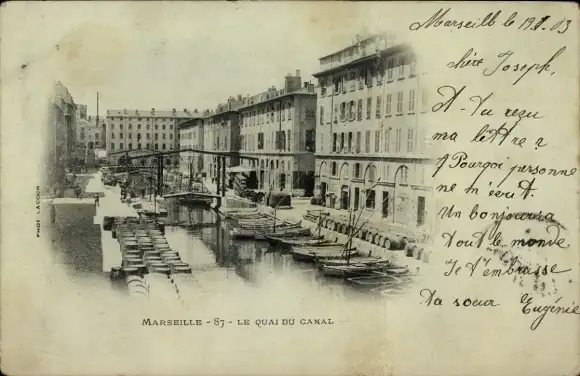 Marseille le 19.1.03
chère Joseph,
A-tu reçu
ma lettre 2
Pourqoi personne
ne m'ecrit
Un bonjour a
tout le monde
Je t'embrasse
Ta soeur Eugénie
PHOT LACOUR
MARSEILLE - 87 - LE QUAI DU CANAL